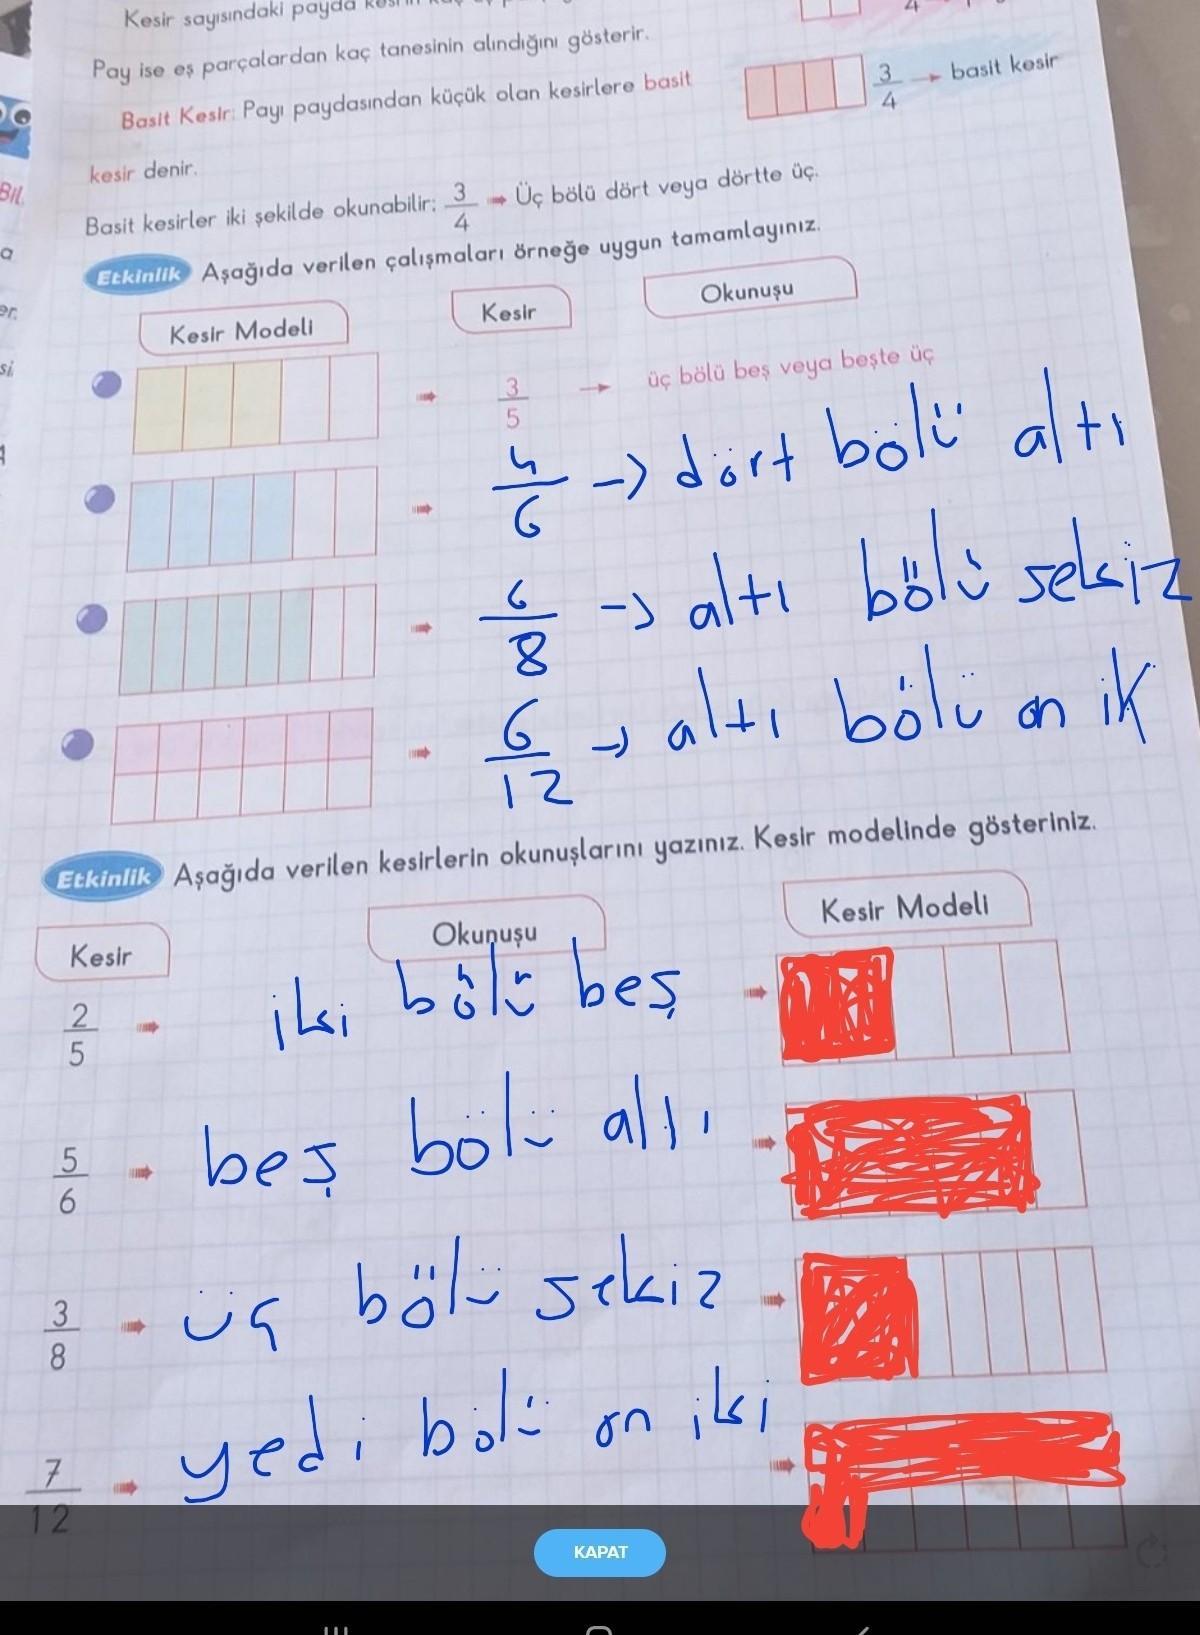 Kesir sayısındaki payda
Pay ise eş parçalardan kaç tanesinin alındığını gösterir.
Basit Kesir: Payı paydasından küçük olan kesirlere basit
kesir denir.
3/4 → basit kesir
Basit kesirler iki şekilde okunabilir: 3/4 → Üç bölü dört veya dörtte üç.
Etkinlik Aşağıda verilen çalışmaları örneğe uygun tamamlayınız.
Kesir Modeli Kesir Okunuşu
3/5 → üç bölü beş veya beşte üç
4/6 → dört bölü altı
6/8 → altı bölü sekiz
6/12 → altı bölü on ik
Etkinlik Aşağıda verilen kesirlerin okunuşlarını yazınız. Kesir modelinde gösteriniz.
Kesir Okunuşu Kesir Modeli
2/5 iki bölü beş
5/6 beş bölü altı
3/8 üç bölü sekiz
7/12 yedi bölü on iki
KAPAT